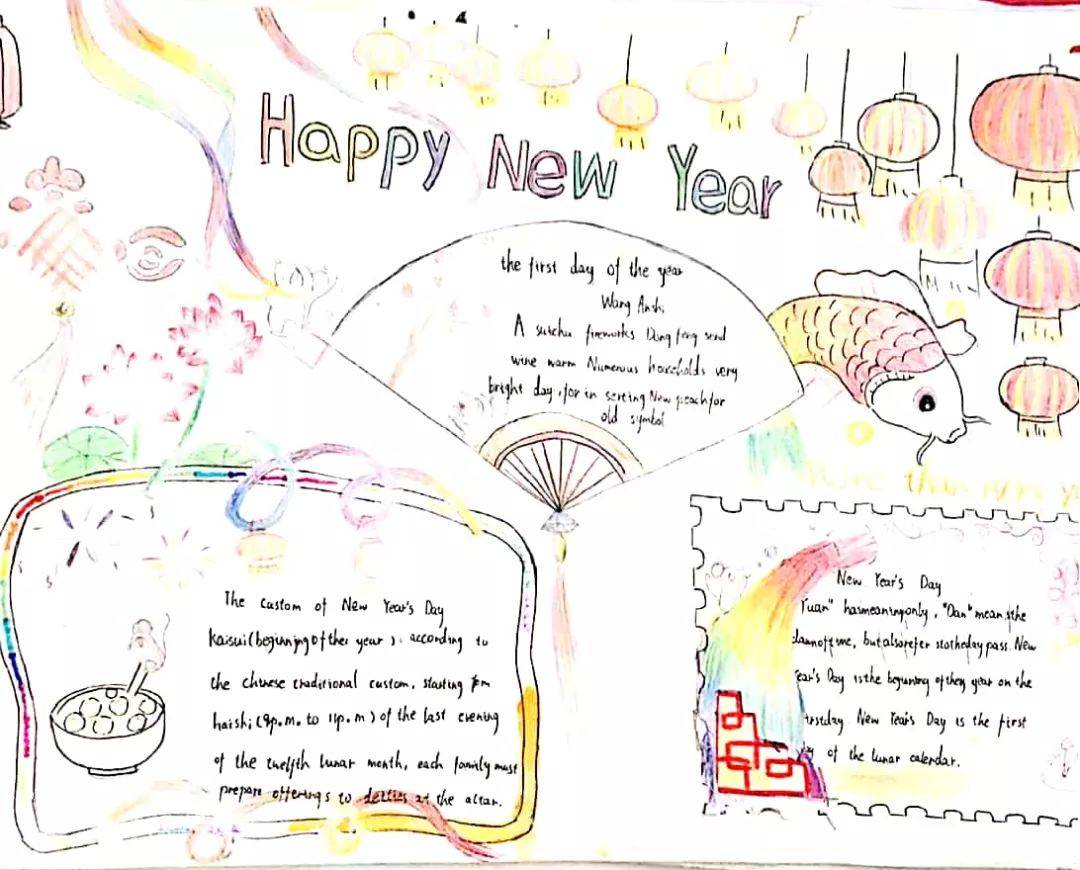 Happy New Year
the first day of the year
Wang Anshi
A sutchu fireworks Dong feng send
wine warm Numerous households very
bright day, for in serting New peach for
old symbol
The custom of New Year's Day
Kaisui (beginning of ther year). according to
the chinese traditional custom, starting from
haishi (9p.m. to 11p.m) of the last evening
of the twelfth lunar month, each family must
prepare offerings to deities at the altar.
New Year's Day
Yuan" hasmeaningonly, "Dan" mean sthe
dawnoftime, butalsorefer stotheday pass. New
Year's Day isthe beginning ofthey year on the
firstday New Year's Day is the first
of the lunar calendar.